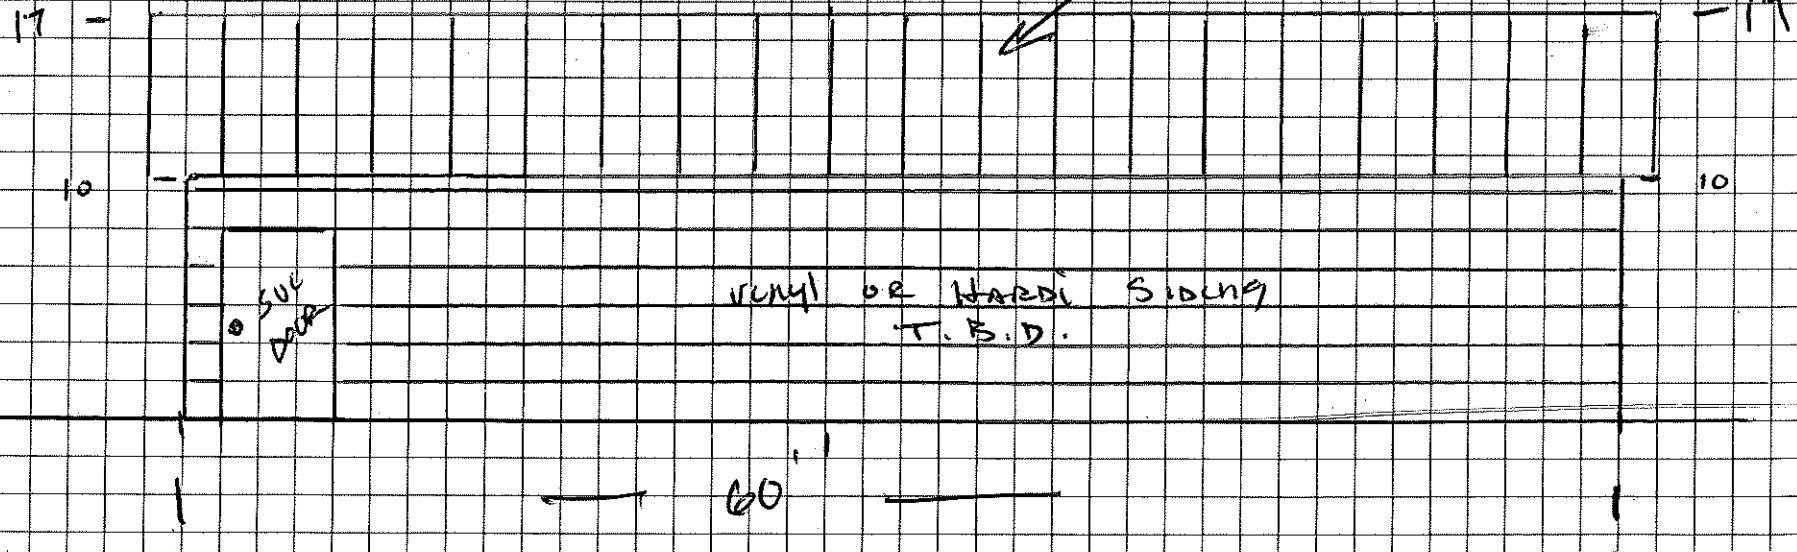 17 -
- 17
10 -
- 10
SVC
DOOR
Vinyl OR HARDi SiDing
T.B.D.
60'